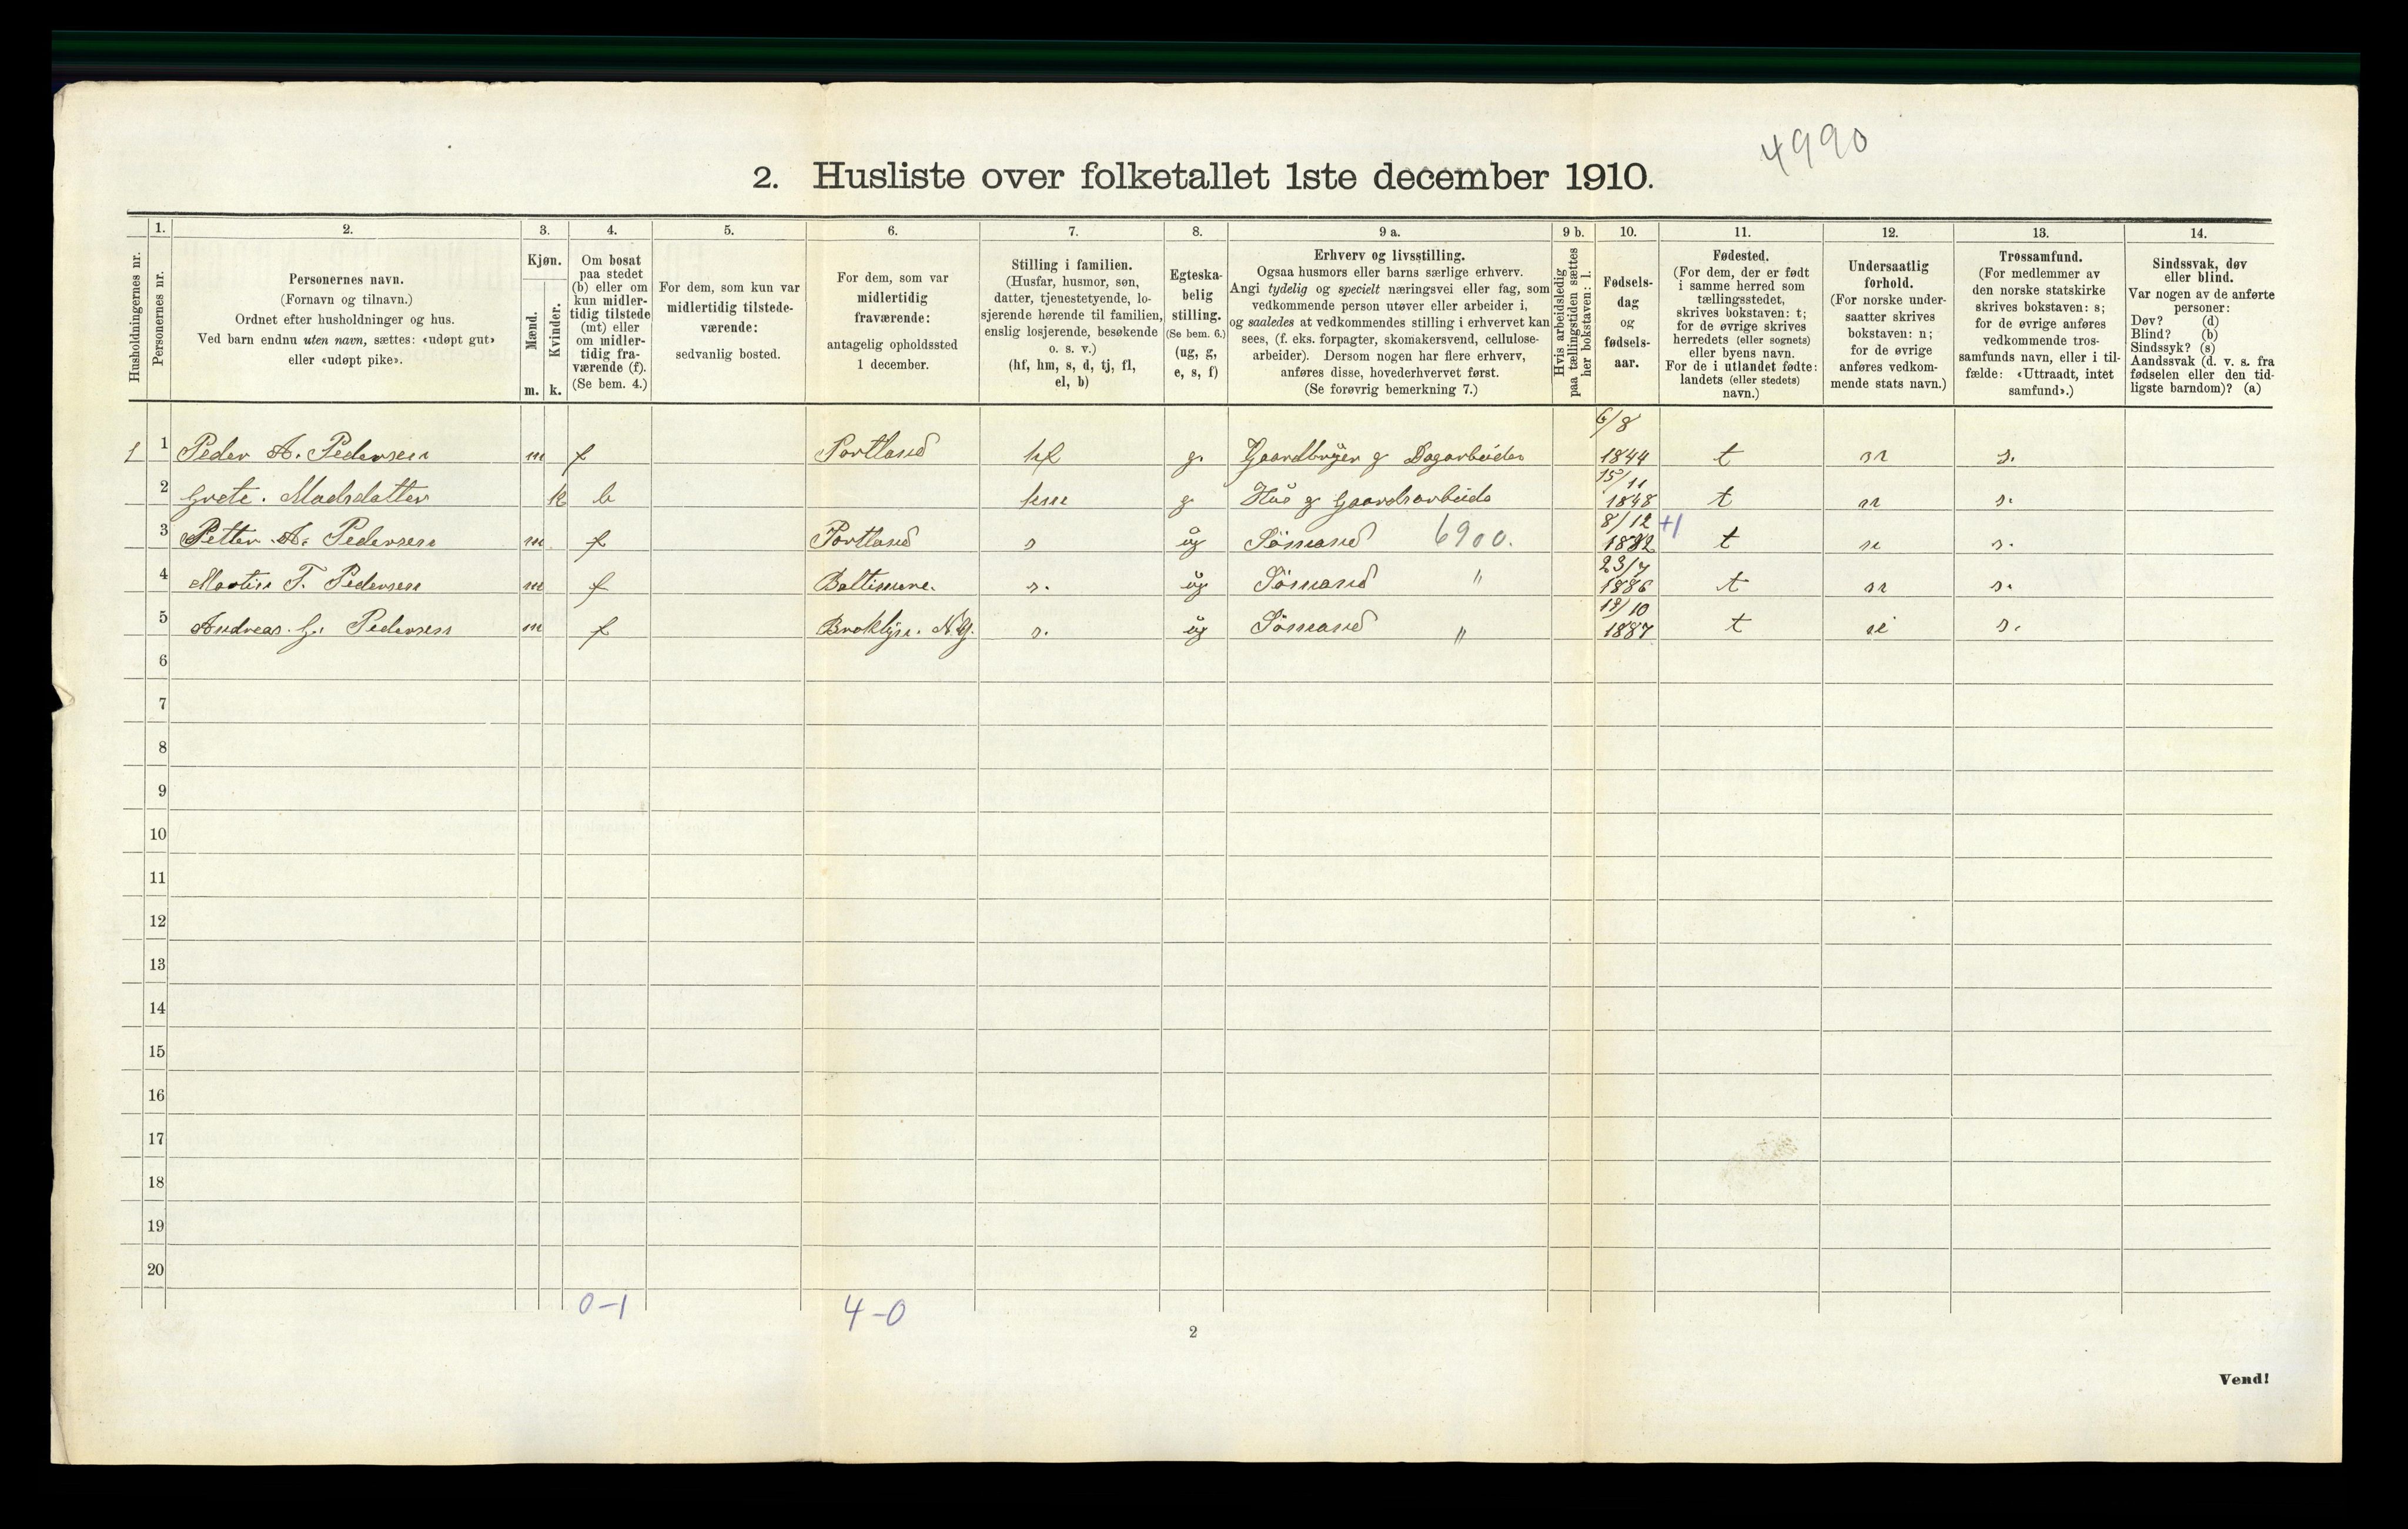 4990
2. Husliste over folketallet 1ste december 1910.
Husholdningernes nr.
1.
Personernes nr.
2.
Personernes navn.
(Fornavn og tilnavn.)
Ordnet efter husholdninger og hus.
Ved barn endnu uten navn, sættes: «udøpt gut»
eller «udøpt pike».
3.
Kjøn.
Mænd.
m.
Kvinder.
k.
4.
Om bosat
paa stedet
(b) eller om
kun midler-
tidig tilstede
(mt) eller
om midler-
tidig fra-
værende (f).
(Se bem. 4.)
5.
For dem, som kun var
midlertidig tilstede-
værende:
sedvanlig bosted.
6.
For dem, som var
midlertidig
fraværende:
antagelig opholdssted
1 december.
7.
Stilling i familien.
(Husfar, husmor, søn,
datter, tjenestetyende, lo-
sjerende hørende til familien,
enslig losjerende, besøkende
o. s. v.)
(hf, hm, s, d, tj, fl,
el, b)
8.
Egteska-
belig
stilling.
(Se bem. 6.)
(ug, g,
e, s, f)
9 a.
Erhverv og livsstilling.
Ogsaa husmors eller barns særlige erhverv.
Angi tydelig og specielt næringsvei eller fag, som
vedkommende person utøver eller arbeider i,
og saaledes at vedkommendes stilling i erhvervet kan
sees, (f. eks. forpagter, skomakersvend, cellulose-
arbeider). Dersom nogen har flere erhverv,
anføres disse, hovederhvervet først.
(Se forøvrig bemerkning 7.)
9 b.
Hvis arbeidsledig
paa tællingstiden sættes
her bokstaven: l.
10.
Fødsels-
dag
og
fødsels-
aar.
11.
Fødested.
(For dem, der er født
i samme herred som
tællingsstedet,
skrives bokstaven: t;
for de øvrige skrives
herredets (eller sognets)
eller byens navn.
For de i utlandet fødte:
landets (eller stedets)
navn.)
12.
Undersaatlig
forhold.
(For norske under-
saatter skrives
bokstaven: n;
for de øvrige
anføres vedkom-
mende stats navn.)
13.
Trossamfund.
(For medlemmer av
den norske statskirke
skrives bokstaven: s;
for de øvrige anføres
vedkommende tros-
samfunds navn, eller i til-
fælde: «Uttraadt, intet
samfund».)
14.
Sindssvak, døv
eller blind.
Var nogen av de anførte
personer:
Døv? (d)
Blind? (b)
Sindssyk? (s)
Aandssvak (d. v. s. fra
fødselen eller den tid-
ligste barndom)? (a)
1 1 Peder A. Pedersen m f Portland hf g. Gaardbruger g Dagarbeider 6/8 1844 t n s.
2 Grete. Madsdatter k b hm g Hus g Gaardsarbeide 15/11 1848 t n s.
3 Petter A. Pedersen m f Portland s ug Sömand 6900. 8/12 1882 +1 t n s.
4 Martin T. Pedersen m f Baltimore. s. ug Sömand " 23/7 1886 t n s.
5 Andreas. G. Pedersen m f Broklyn. N.Y. s. ug Sömand " 19/10 1887 t n s.
6
7
8
9
10
11
12
13
14
15
16
17
18
19
20
0-1 4-0
2
Vend!